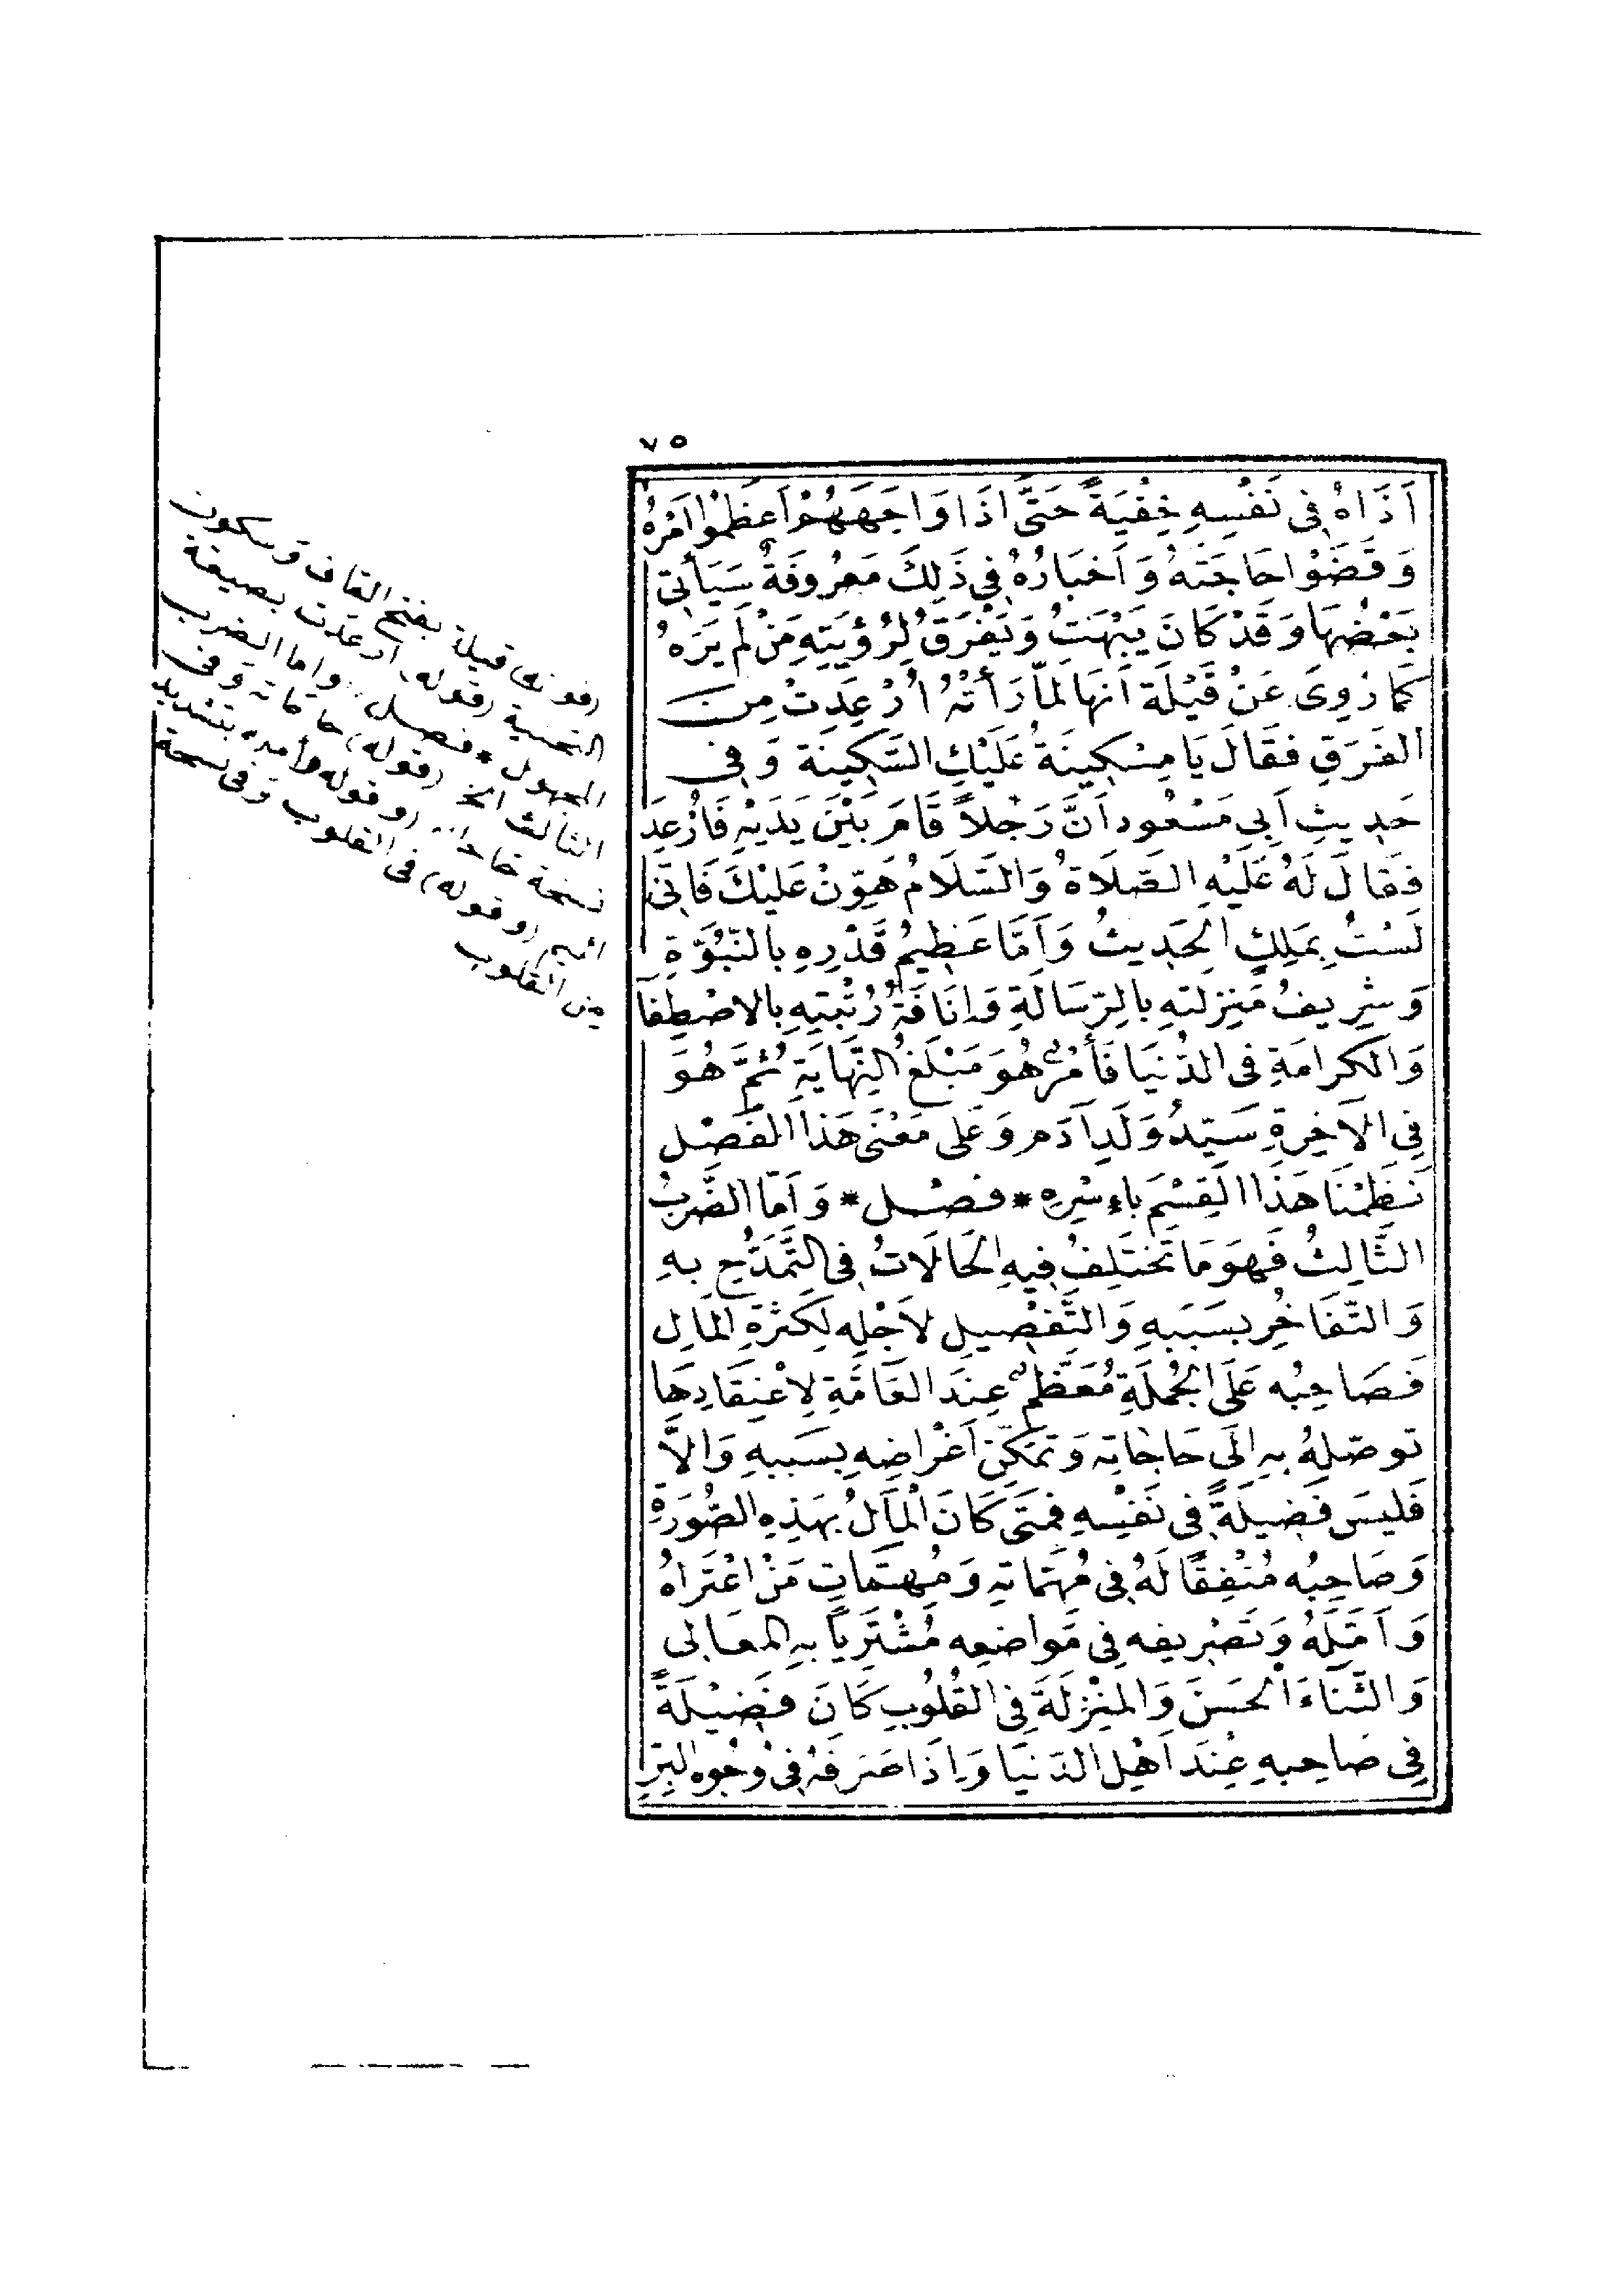 ٧٥
اَذَاهُ فِى نَفْسِهِ خِفْيَةً حَتَّى اذَا وَاجَهَهُمْ اَعْظَمُوا اَمْرَهُ
وَقَضَوْا حَاجَتَهُ وَاَخْبَارُهُ فِي ذَلِكَ مَعْرُوفَةٌ سَيَأْتِى
بَعْضُهَا وَقَدْ كَانَ يَبْهَتُ وَيَفْرَقُ لِرُؤْيَتِهِ مَنْ لَمْ يَرَهُ
كَمَا رُوِىَ عَنْ قَيْلَةَ اَنَّهَا لَمَّا رَأَتْهُ اُرْعِدَتْ مِنَ
الفَرَقِ فَقَالَ يَا مِسْكِينَةُ عَلَيْكِ السَّكِينَةَ وَفِى
حَدِيثِ اَبِى مَسْعُودٍ اَنَّ رَجُلاً قَامَ بَيْنَ يَدَيْهِ فَاُرْعِدَ
فَقَالَ لَهُ عَلَيْهِ الصَّلَاةُ وَالسَّلَامُ هَوِّنْ عَلَيْكَ فَاِنِّى
لَسْتُ بِمَلِكٍ الحَدِيثُ وَاَمَّا عَظِيمُ قَدْرِهِ بِالنُّبُوَّةِ
وَشَرِيفُ مَنْزِلَتِهِ بِالرِّسَالَةِ وَاِنَافَةُ رُتْبَتِهِ بِالاصْطِفَآ
وَالكَرَامَةِ فِى الدُّنْيَا فَأَمْرٌ هُوَ مَبْلَغُ النِّهَايَةِ ثُمَّ هُوَ
فِى الآخِرَةِ سَيِّدُ وَلَدِ آدَمَ وَعَلَى مَعْنَى هَذَا الفَصْلِ
نَظَمْنَا هَذَا القِسْمَ بِاَسْرِهِ * فصْل * وَاَمَّا الضَّرْبُ
الثَّالِثُ فَهُوَ مَا تَخْتَلِفُ فِيهِ الحَالَاتُ فِى التَّمَدُّحِ بِهِ
وَالتَّفَاخُرِ بِسَبَبِهِ وَالتَّفْضِيلِ لاَجْلِهِ لِكَثْرَةِ المَالِ
فَصَاحِبُه عَلَى الجُمْلَةِ مُعَظَّمٌ عِنْدَ العَامَّةِ لِاعْتِقَادِهَا
تَوَصُّلَهُ بِهِ اِلَى حَاجَاتِهِ وَتَمَكُّنِ اَغْرَاضِهِ بِسَبَبِهِ وَاِلاَّ
فَلَيْسَ فَضِيلَةً فِى نَفْسِهِ فَمَتَى كَانَ الْمَالُ بِهَذِهِ الصُّورَةِ
وَصَاحِبُه مُنْفِقًا لَهُ فِى مُهِمَّاتِهِ وَمُهِمَّاتِ مَنْ اعْتَرَاهُ
وَاَمَّلَهُ وَتَصْرِيفِهِ فِى مَوَاضِعِهِ مُشْتَرِيًا بِهِ المَعَالِى
وَالثَّنَاءَ الْحَسَنَ وَالمَنْزِلَةَ فِى القُلُوبِ كَانَ فَضِيْلَةً
فِى صَاحِبِهِ عِنْدَ اَهْلِ الدُّنْيَا وَاِذَا صَرَفَهُ فِى وُجُوهِ البِرِّ
(قوله قيلة) بفتح القاف وسكون
التحتية (قوله) ارعدت بصيغة
المجهول * فصل واما الضرب
الثالث الخ (قوله) حاجاته وفى
نسخة (وقوله وأمله) بتشديد
الميم (وقوله) فى القلوب وفى نسخة
من القلوب